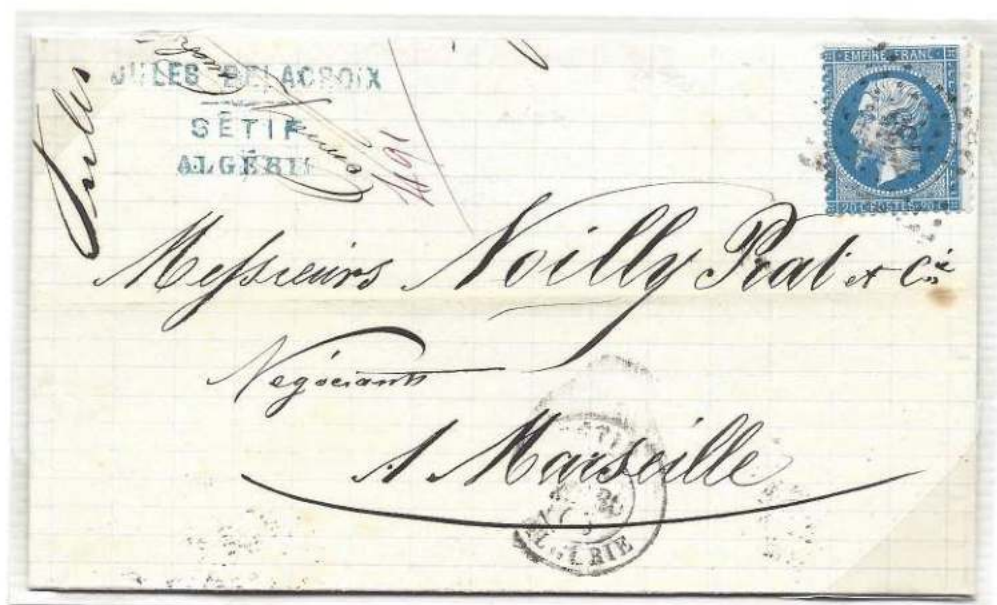 JULES DELACROIX
SÉTIF
ALGÉRIE
Jules
1691
EMPIRE FRANC
20 C POSTES 20 C
Messieurs Noilly Prat et Cie
Négociants
A Marseille
SÉTIF
ALGÉRIE